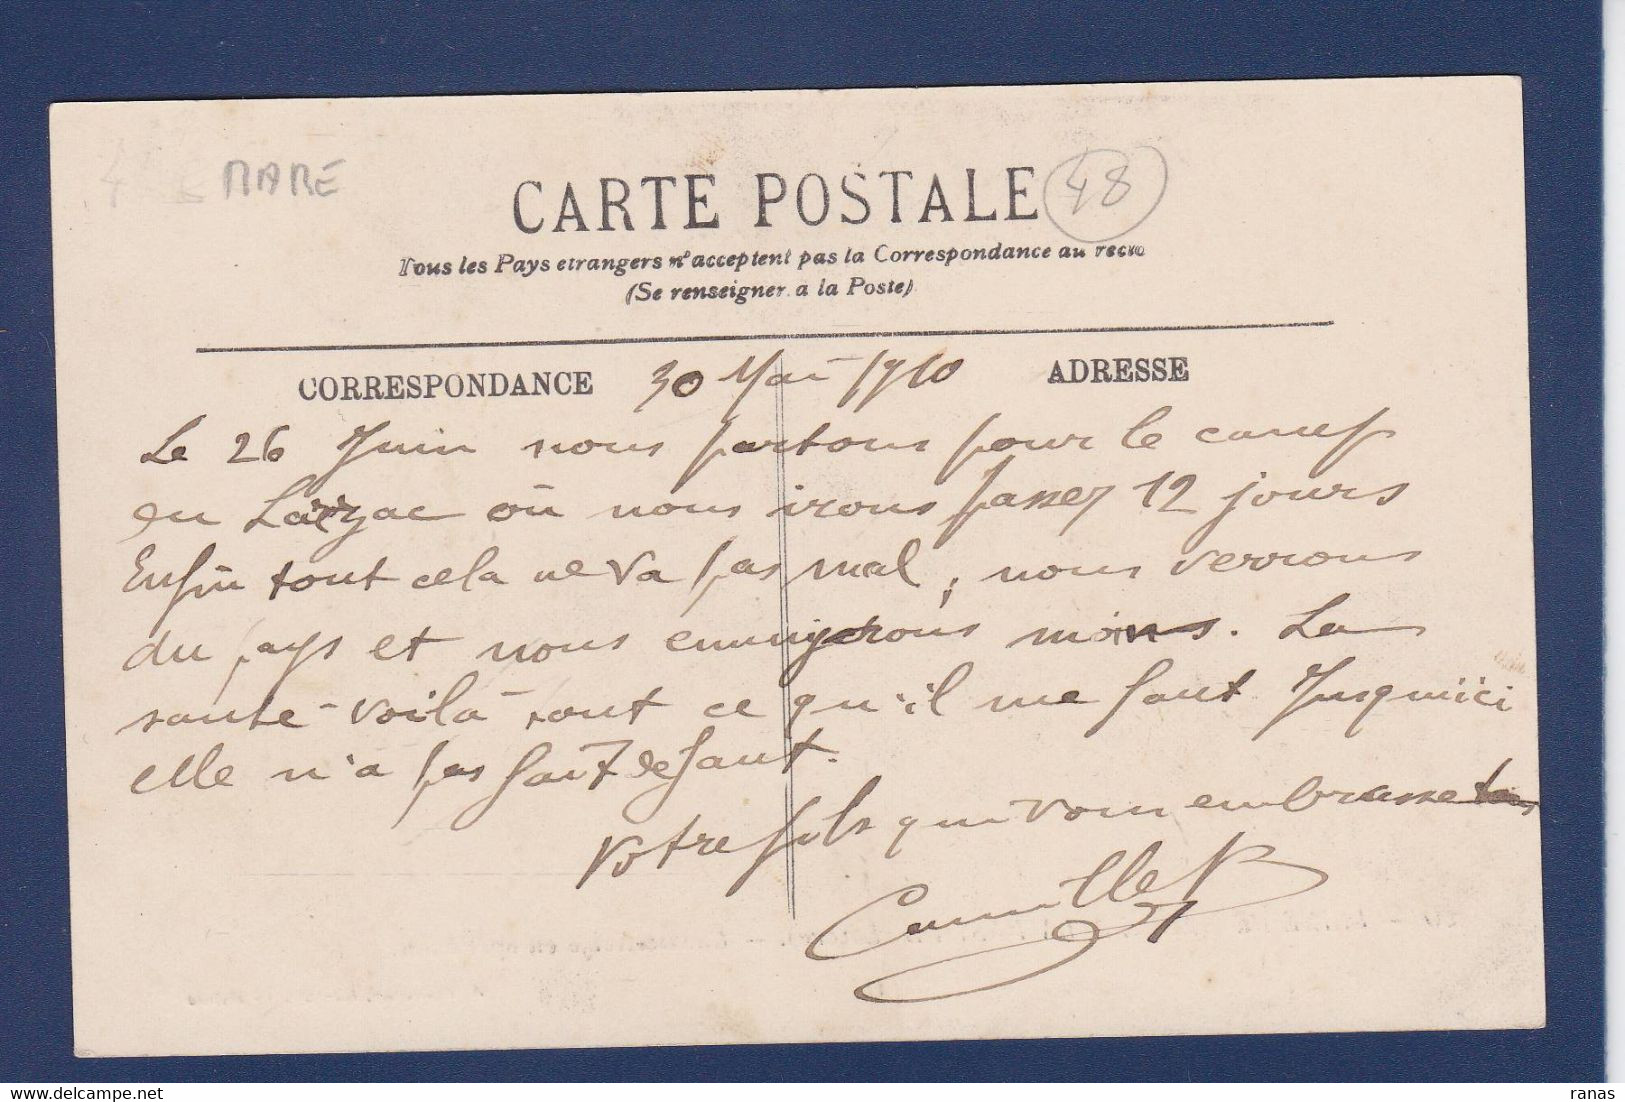 RARE
CARTE POSTALE
48
Tous les Pays etrangers n'acceptent pas la Correspondance au recto
(Se renseigner a la Poste)
CORRESPONDANCE 30 Mai 1910 ADRESSE
Le 26 Juin nous partons pour le camp
du Larzac où nous irons passer 12 jours
Enfin tout cela ne va pas mal, nous verrons
du pays et nous ennuyerons moins. La
santé voilà tout ce qu'il me faut Jusqu'ici
elle n'a pas fait defaut.
Votre fils qui vous embrasse tous
Camille
ranas